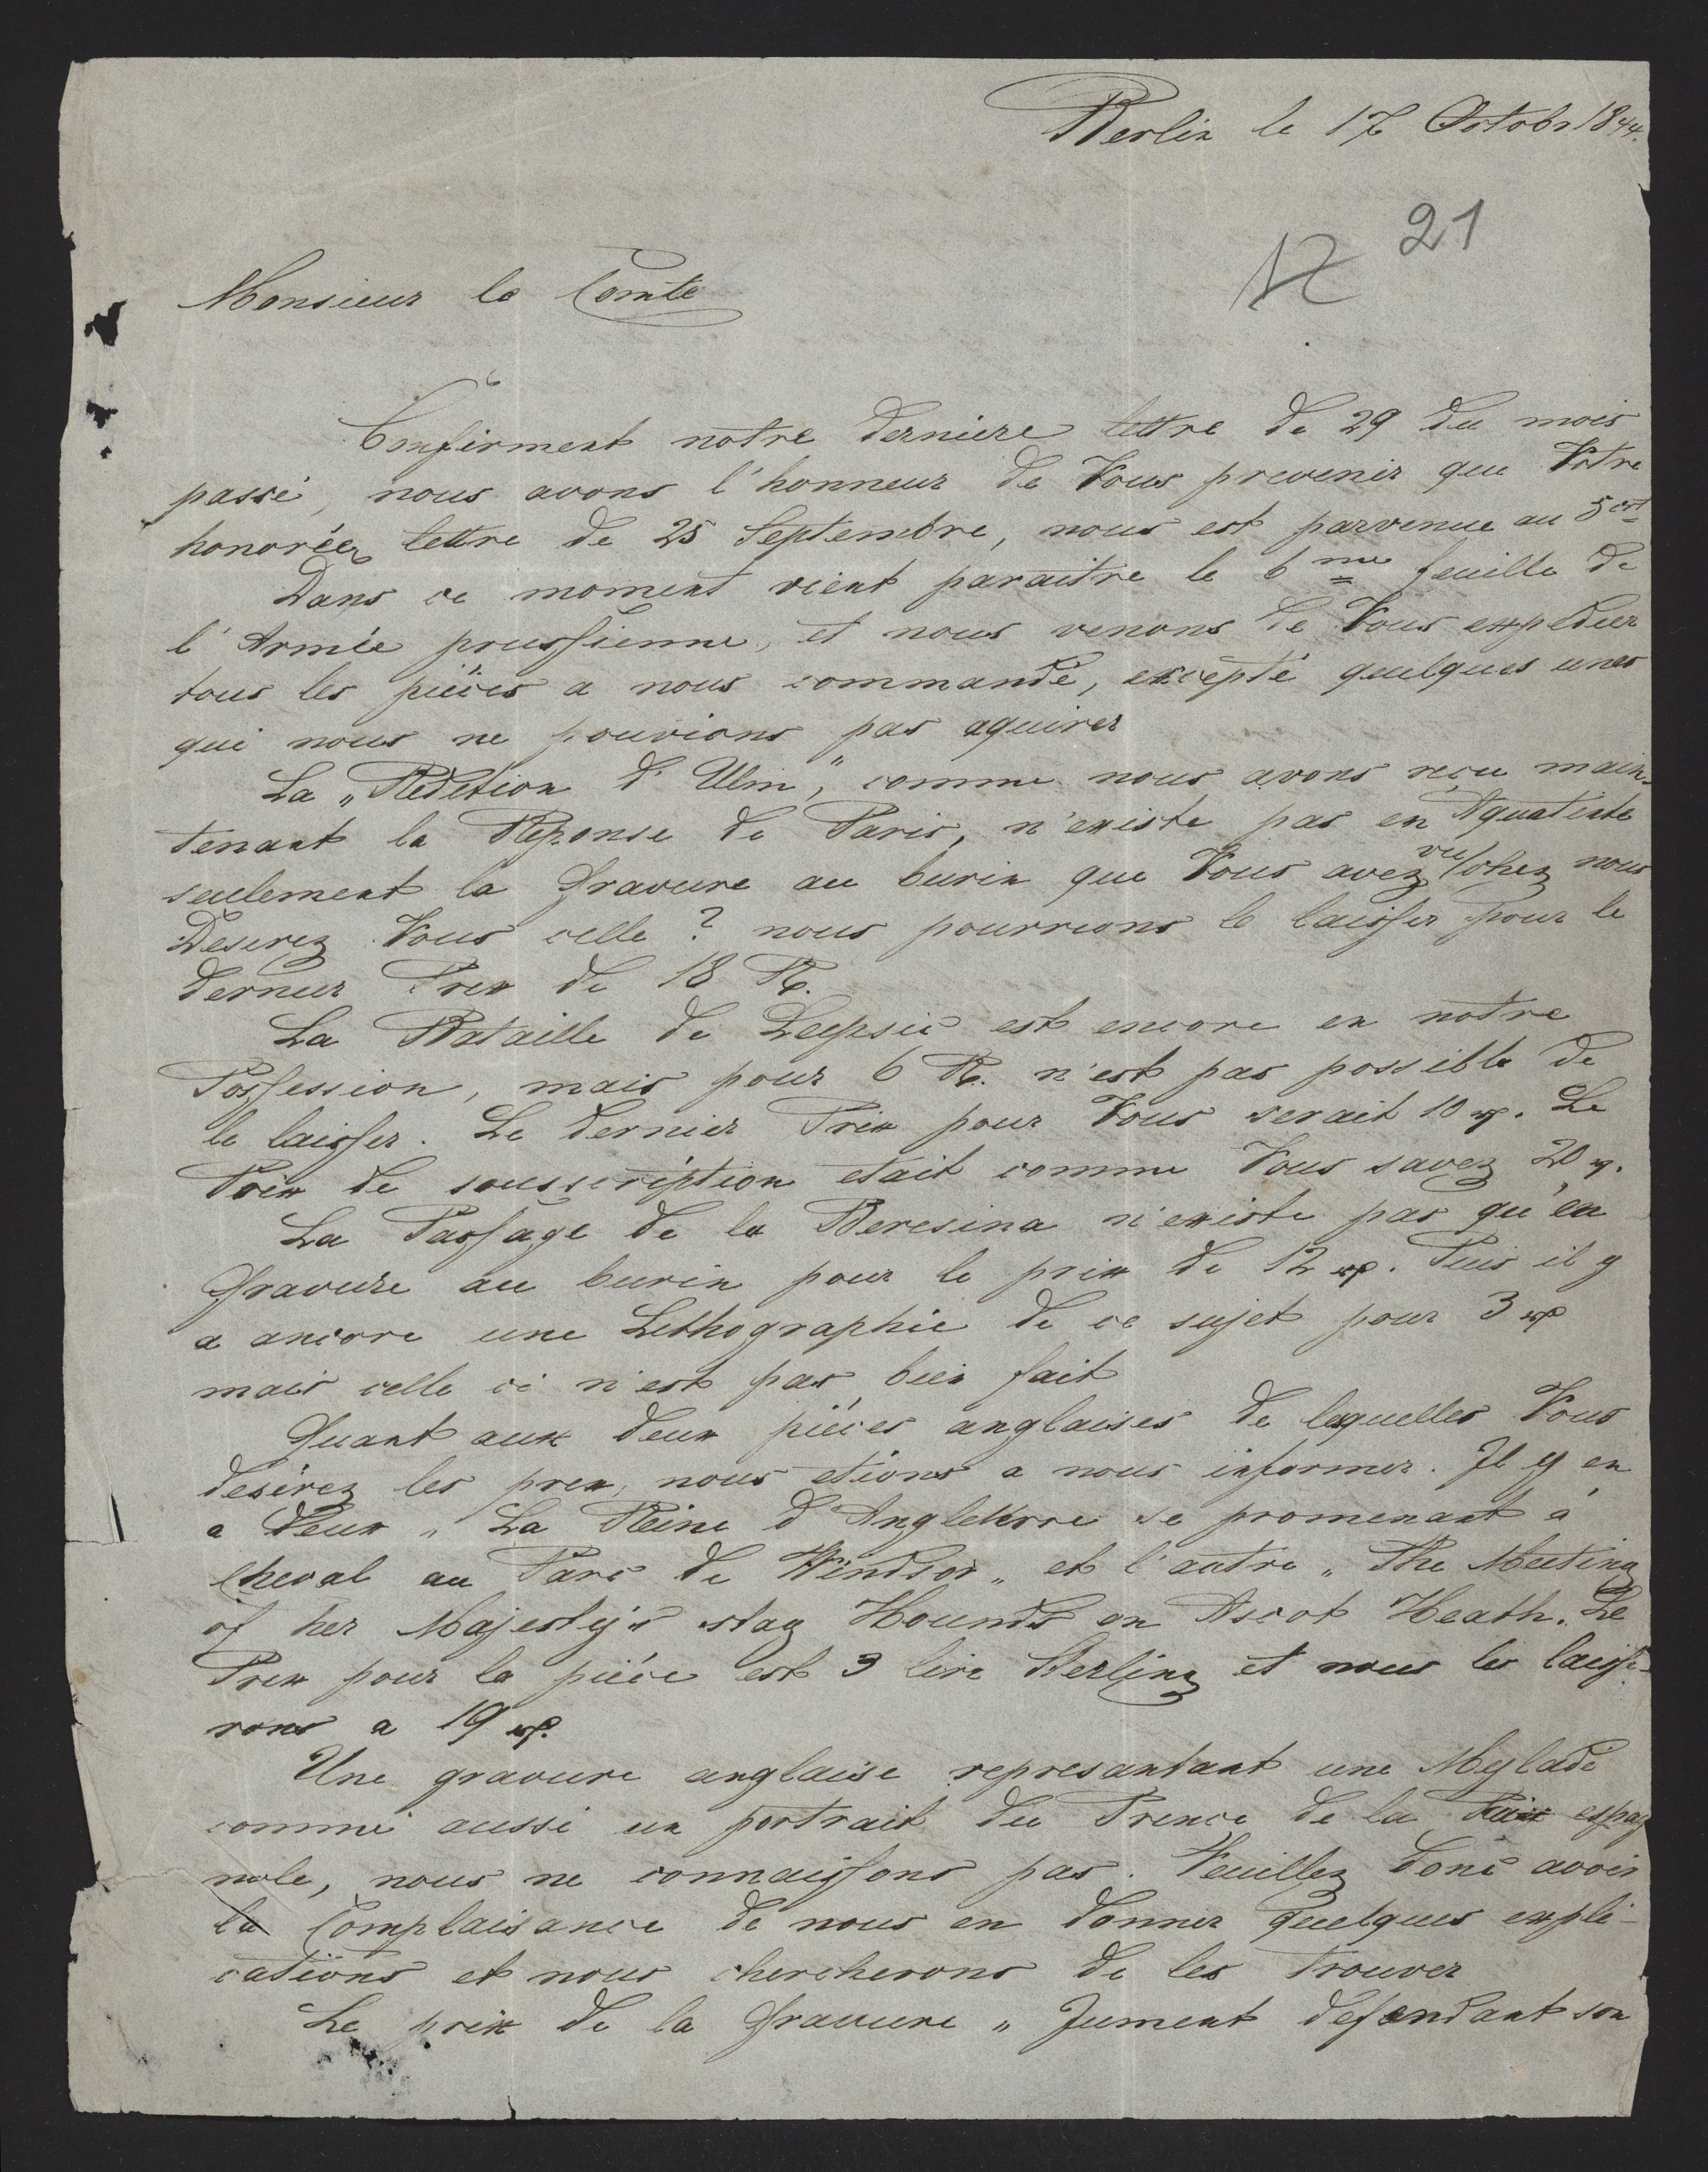 Berlin le 17 Octobr 1844.
21
Monsieur le Comte
Confirment notre derniere lettre de 29 du mois
passé, nous avons l'honneur de Vous prevenir que Votre
honorée lettre de 25 Septembre, nous est parvenue au 5 ct
Dans ce moment vient paraitre le 6me feuille de
l'Armée prussienne, et nous venons de Vous expedier
tous les piéces a nous commandé, excepté quelques unes
qui nous ne pouvions pas aquirer
La „Redetion d'Ulm", comme nous avons reçu main-
tenant la Reponse de Paris, n'existe pas en Aquatinte
seulement la Gravure au burin que Vous avez vu chez nous
Deserez Vous celle? nous pourrions le laisser pour le
dernier Prix de 18 R.
La Bataille de Leipsic est encore en notre
Possession, mais pour 6 R. n'est pas possible de
le laisser. Le dernier Prix pour Vous serait 10 rp. Le
Prix de souscription etait comme Vous savez 20 rp.
La Passage de la Beresina n'existe pas qu'en
Gravure au burin pour le prix de 12 rp. Puis il y
a ancore une Lithographie de ce sujet pour 3 rp
mais celle ci n'est pas bien fait
Quant aux deux piéces anglaises de lequelles Vous
desirez les prix, nous etions a nous informer. Il y en
a deux „La Reine d'Angleterre se promenant à
Cheval au Parc de Windsor„ et l'autre „The Meeting
of her Majesty's stag Hounds on Ascot Heath. Le
Prix pour la piéce est 3 livre Sterling et nous les laisse-
rons a 19 rp.
Une gravure anglaise represantant une Myladi
comme aussi un portrait du Prince de la Paix espag
nole, nous ne connaissons pas. Veuillez donc avoir
la Complaisance de nous en donner quelques expli-
cations et nous chercherons de les trouver
Le prix de la Gravure „Jument defendant son